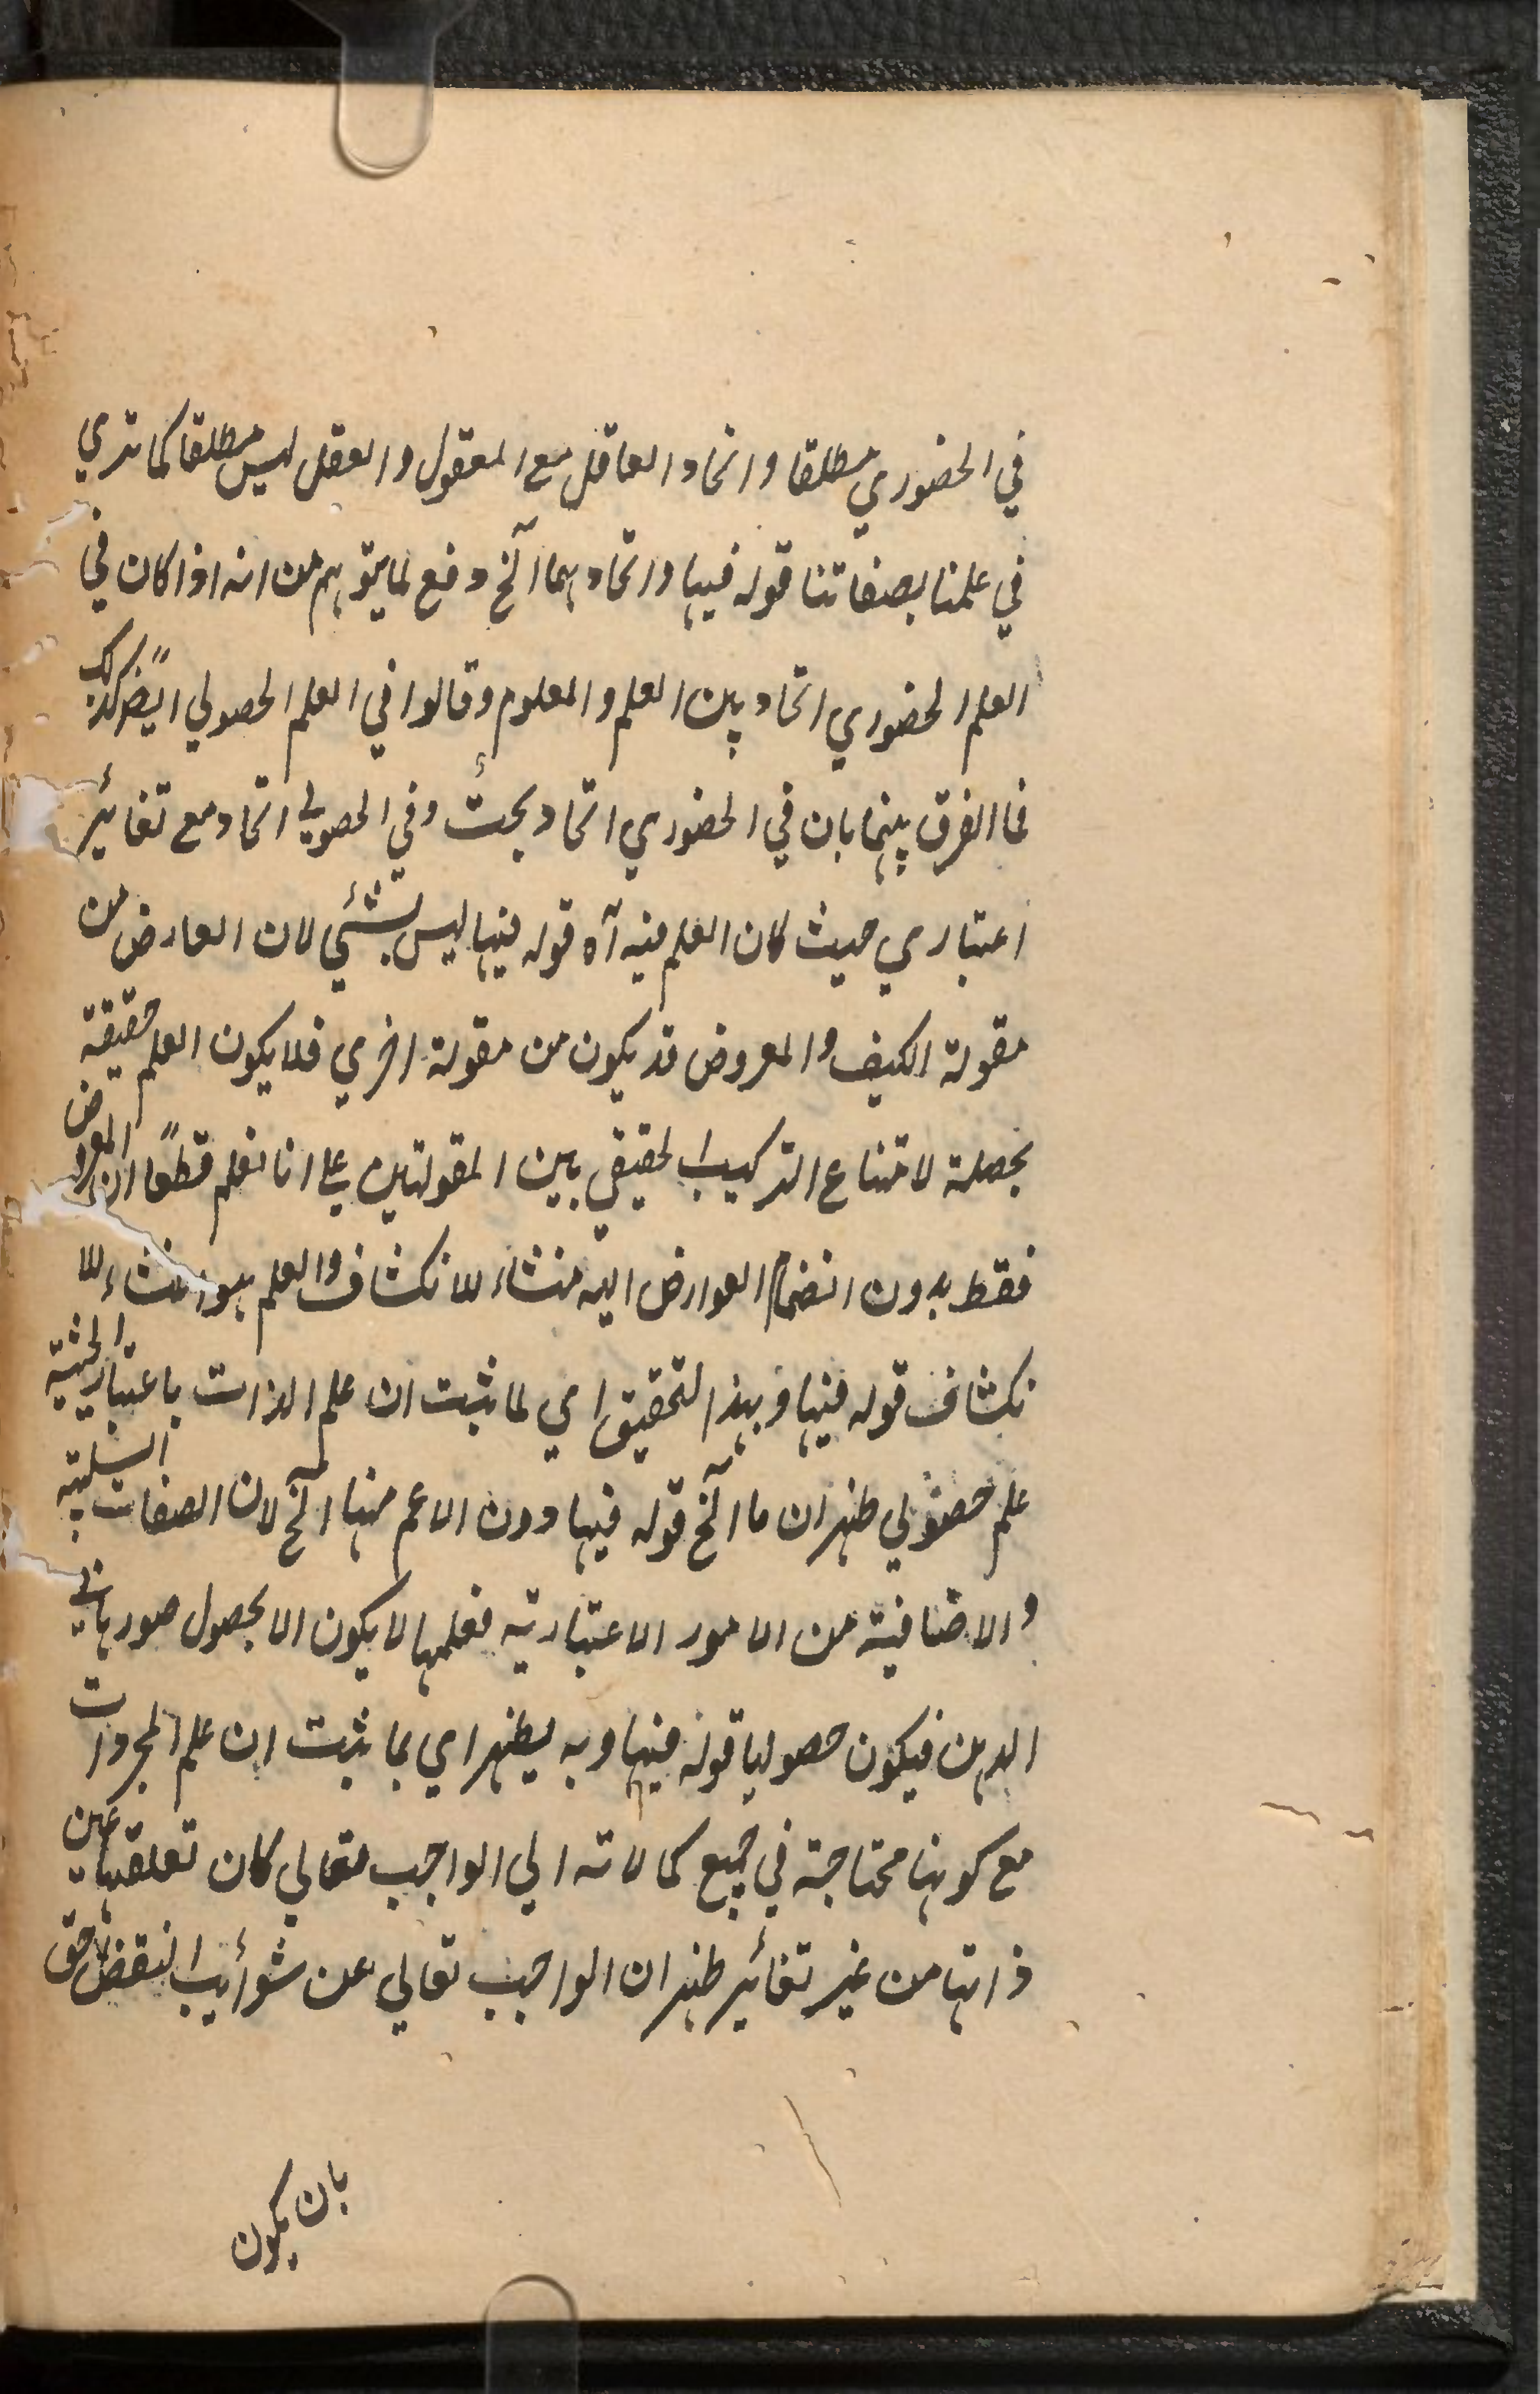 في الحضوري مطلقا واتحاد العاقل مع المعقول والعقل ليس مطلقا كما تري
في علمنا بصفاتنا قوله فيها واتحادهما آلخ دفع لما يتوهم من انه اذا كان في
العلم الحضوري اتحاد بين العلم والمعلوم وقالوا في العلم الحصولي ايضًا كذلك
فما الفرق بينهما بان في الحضوري اتحاد بحت وفي الحصولي اتحاد مع تغائر
اعتباري حيث كان العلم فيه آه قوله فيها ليس بشئي لان العارض من
مقولة الكيف والمعروض قد يكون من مقولة اخري فلا يكون العلم حقيقة
محصلة لامتناع التركيب الحقيقي بين المقولتين علي انا نعلم قطعًا ان المعروض
فقط بدون انضمام العوارض اليه منشاء للانكشاف والعلم هو منشاء للا
نكشاف قوله فيها وبهذا التحقيق اي لما ثبت ان علم الذات باعتبار الحيثية
علم حصولي ظهر ان ما آلخ قوله فيها دون الاعم منها آلخ لان الصفات السلبية
والاضافية من الامور الاعتبارية فعلمها لا يكون الا بحصول صورها في
الذهن فيكون حصوليا قوله فيها وبه يظهر اي بما ثبت ان علم المجردات
مع كونها محتاجة في جميع كمالاته الي الواجب تعالي كان تعلقها عين
ذاتها من غير تغائر ظهر ان الواجب تعالي عن شوائب النقض احق
بان يكون